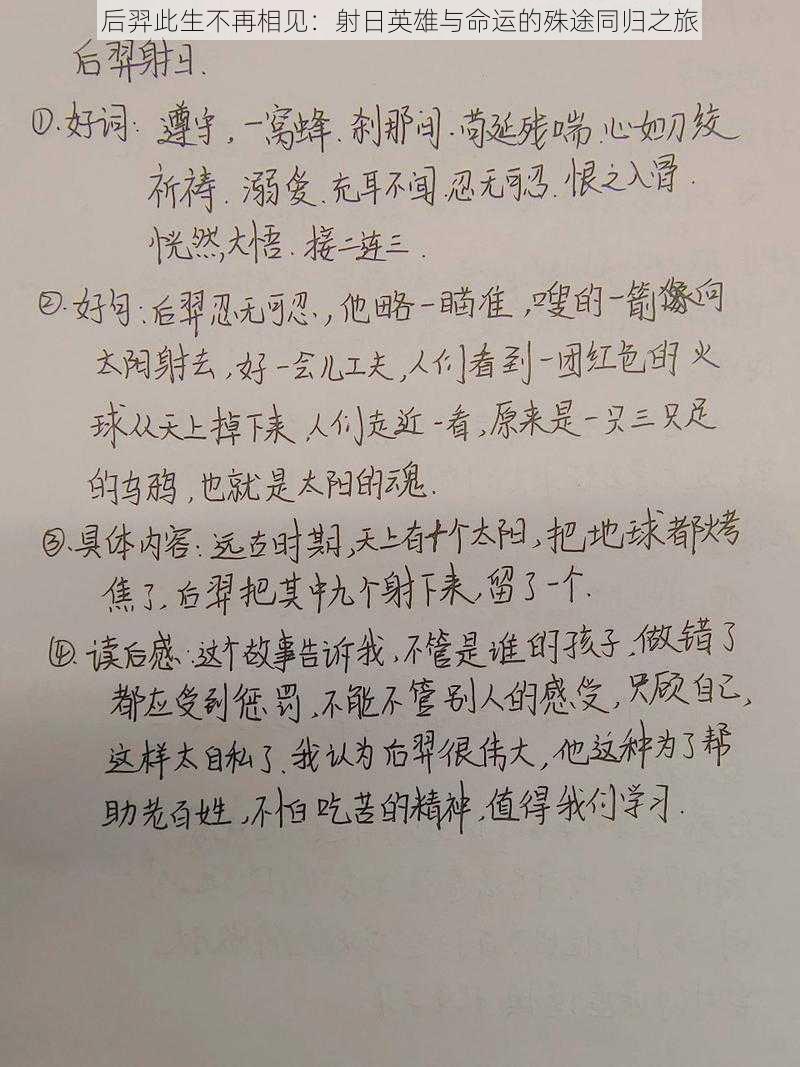 后羿此生不再相见：射日英雄与命运的殊途同归之旅
后羿射日.
①.好词：遵守，一窝蜂.刹那间.苟延残喘.心如刀绞
祈祷.溺爱.充耳不闻.忍无可忍.恨之入骨.
恍然,大悟.接二连三.
②.好句：后羿忍无可忍，他略一瞄准，嗖的一箭向
太阳射去，好一会儿工夫，人们看到一团红色的火
球从天上掉下来，人们走近一看，原来是一只三只足
的乌鸦，也就是太阳的魂.
③.具体内容：远古时期，天上有十个太阳，把地球都烤
焦了，后羿把其中九个射下来，留了一个.
④.读后感：这个故事告诉我，不管是谁的孩子，做错了
都应受到惩罚，不能不管别人的感受，只顾自己，
这样太自私了.我认为后羿很伟大，他这种为了帮
助老百姓，不怕吃苦的精神，值得我们学习.